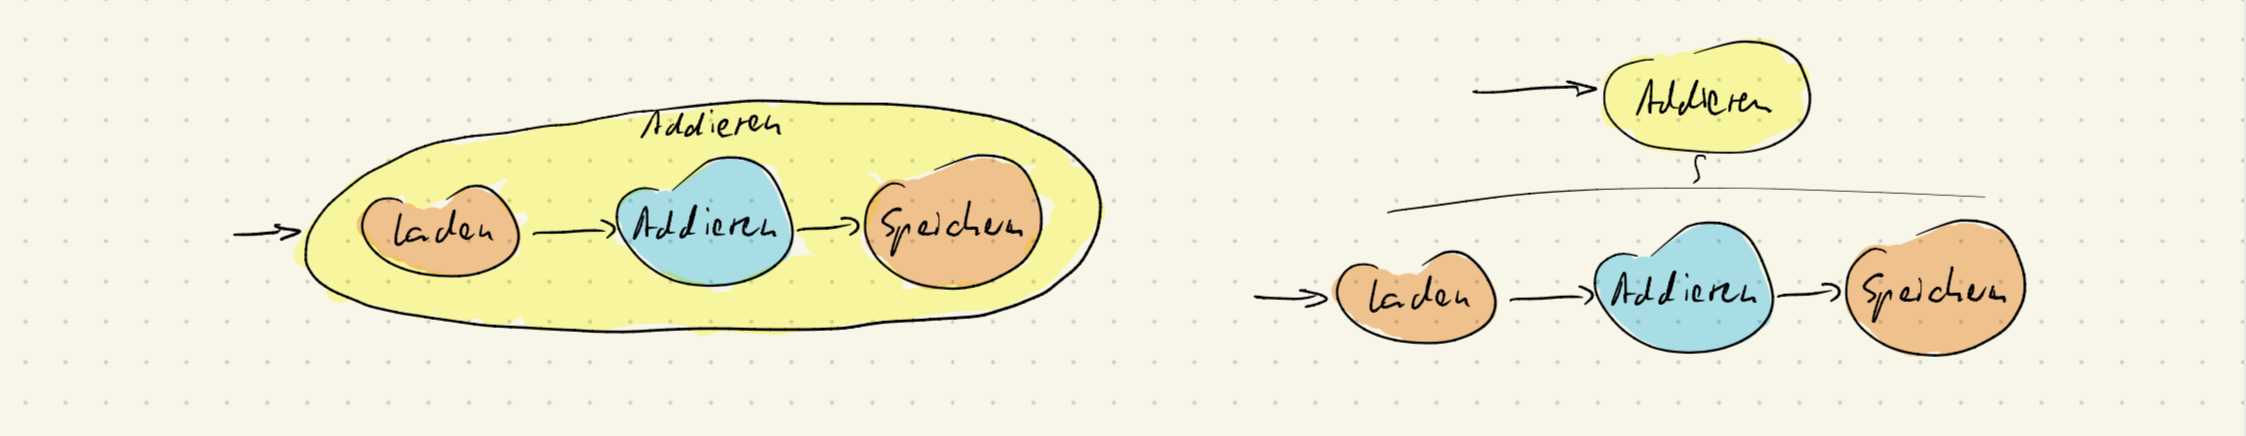 Addieren
Laden Addieren Speichern
Addieren
Laden Addieren Speichern